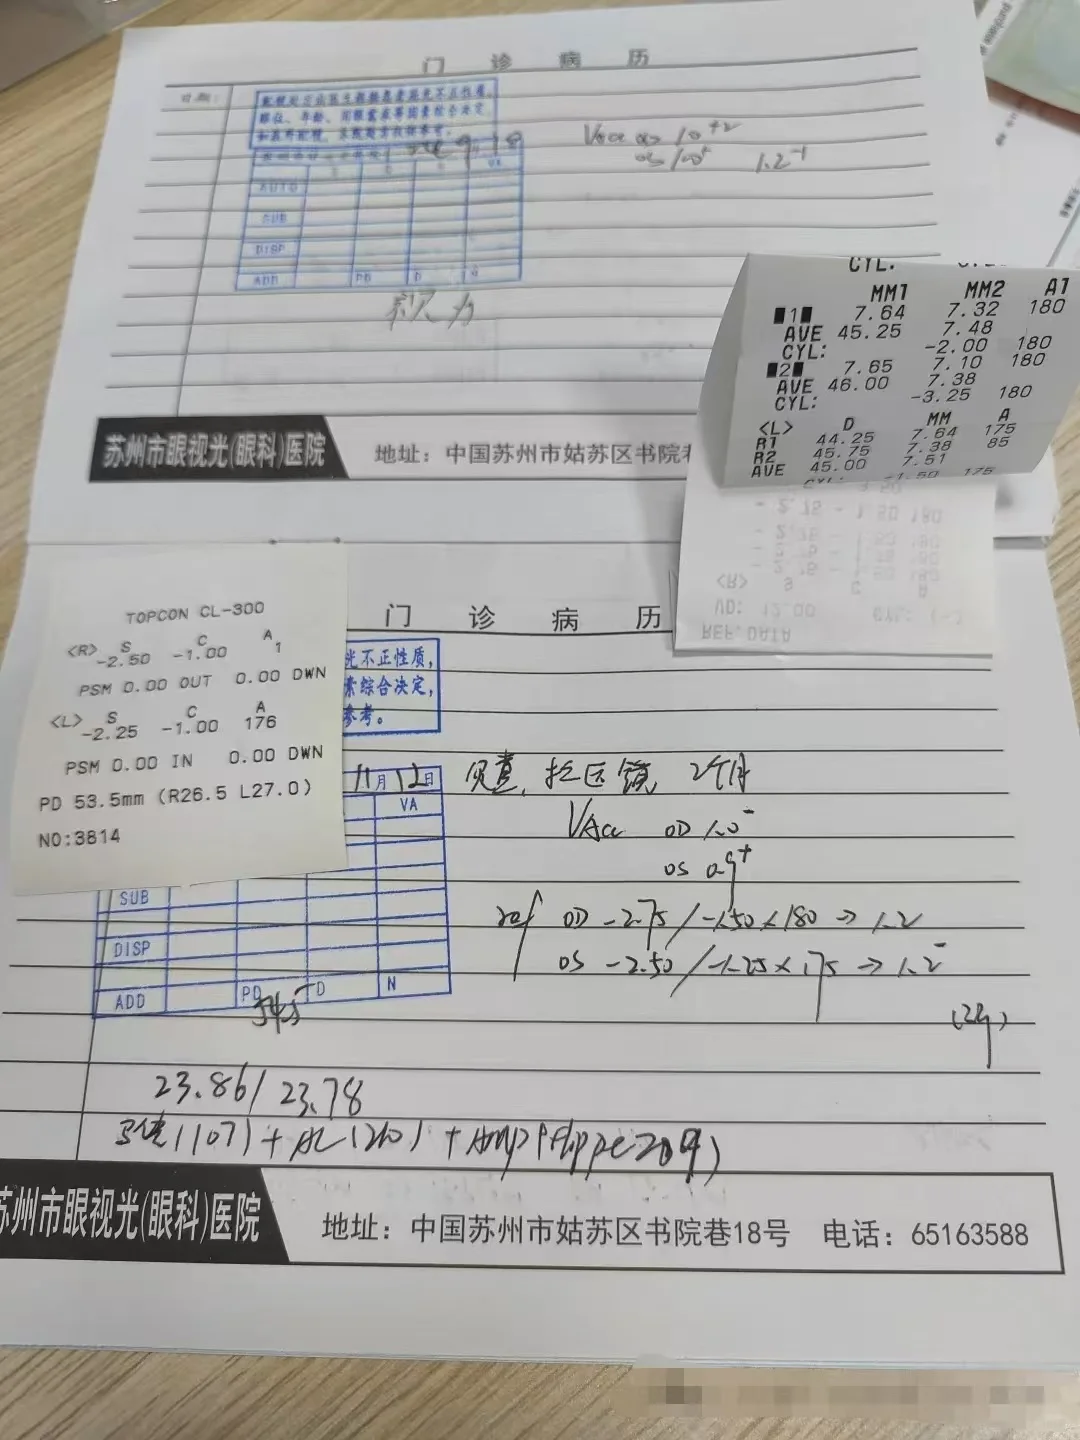 门 诊 病 历
日期:
配镜处方由医生根据患者屈光不正性质,
眼位、年龄、用眼需求等因素综合决定,
9.18
VA
AUTO
SUB
DISP
ADD PD D N
视力
Vacc OD 1.0⁺²
OS 1.0⁺ 1.2⁻¹
苏州市眼视光(眼科)医院 地址:中国苏州市姑苏区书院巷
CYL:
MM1 MM2 A1
1 7.64 7.32 180
AVE 45.25 7.48
CYL: -2.00 180
2 7.65 7.10 180
AVE 46.00 7.38
CYL: -3.25 180
<L> D MM A
R1 44.25 7.64 175
R2 45.75 7.38 85
AVE 45.00 7.51
CYL: -1.50 175
- 2.75 - 1.50 180
<R> S C A
VD: 12.00 CYL: (-)
REF. DATA
TOPCON CL-300
<R> S C A
-2.50 -1.00 1
PSM 0.00 OUT 0.00 DWN
<L> S C A
-2.25 -1.00 176
PSM 0.00 IN 0.00 DWN
PD 53.5mm (R26.5 L27.0)
NO:3814
门 诊 病 历
光不正性质,
素综合决定,
参考。
11月12日
VA
SUB
DISP
ADD PD 54.5 D N
2个月
VAcc OD 1.0⁻
OS 0.9⁺
ref OD -2.75/-1.50×180→1.2
OS -2.50/-1.25×175→1.2⁻
23.86/23.78
苏州市眼视光(眼科)医院 地址:中国苏州市姑苏区书院巷18号 电话:65163588